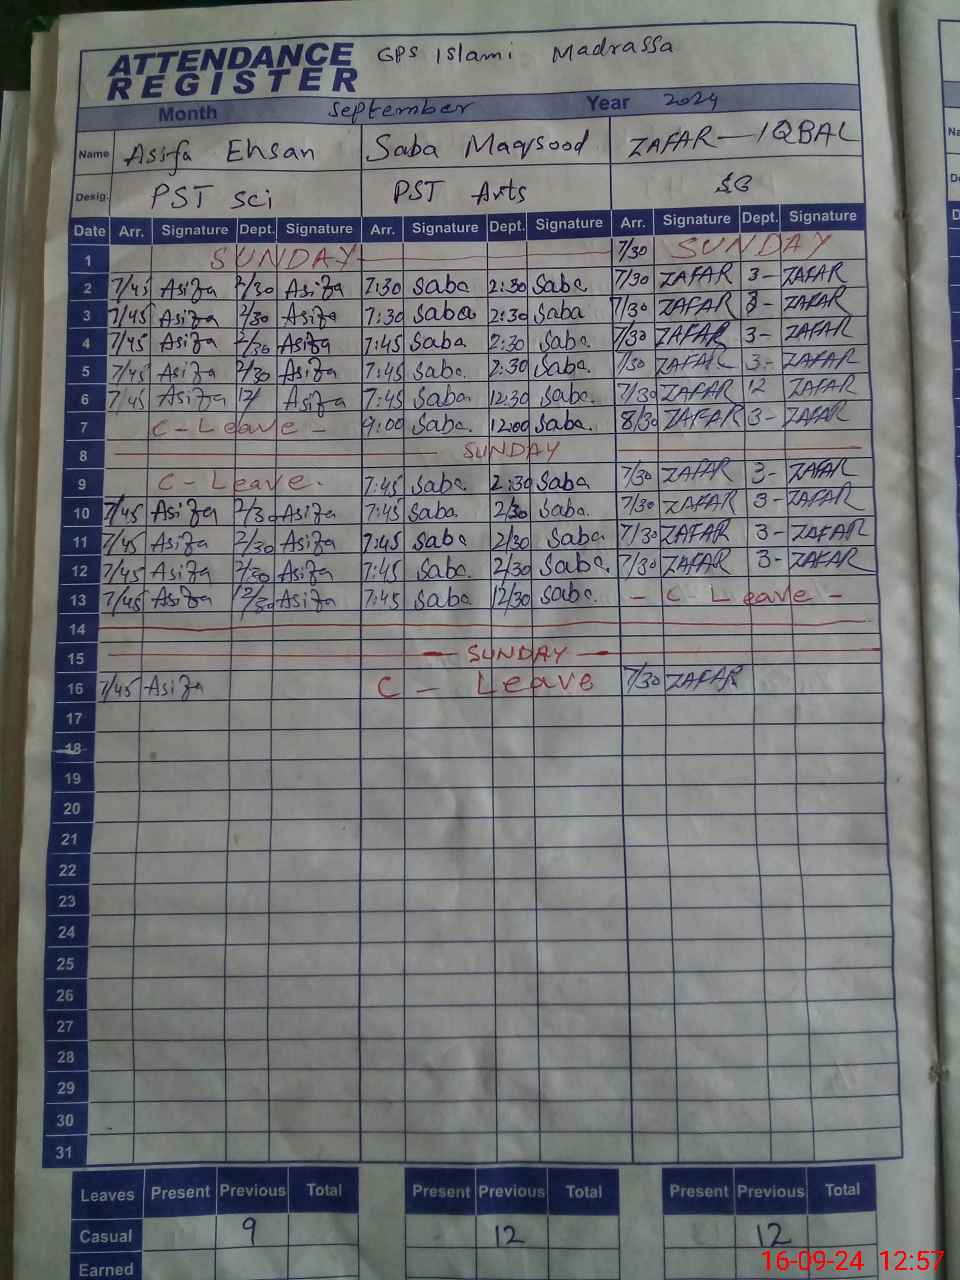 ATTENDANCE REGISTER GPS Islami Madrassa
Month September Year 2024
Name Asifa Ehsan Saba Maqsood ZAFAR — IQBAL
Desig. PST Sci PST Arts
Date Arr. Signature Dept. Signature Arr. Signature Dept. Signature Arr. Signature Dept. Signature
1 SUNDAY 7/30 SUNDAY
2 7/45 Asifa 2/30 Asifa 7:30 Saba 2:30 Saba 7/30 ZAFAR 3- ZAFAR
3 7/45 Asifa 2/30 Asifa 7:30 Saba 2:30 Saba 7/30 ZAFAR 3- ZAFAR
4 7/45 Asifa 2/30 Asifa 7:45 Saba 2:30 Saba 7/30 ZAFAR 3- ZAFAR
5 7/45 Asifa 2/30 Asifa 7:45 Saba 2:30 Saba. 7/30 ZAFAR 3- ZAFAR
6 7/45 Asifa 12/ Asifa 7:45 Saba 12:30 Saba. 7/30 ZAFAR 12 ZAFAR
7 C - Leave - 9:00 Saba. 12:00 Saba. 8/30 ZAFAR 3- ZAFAR
8 SUNDAY
9 C - Leave. 7:45 Saba. 2:30 Saba 7/30 ZAFAR 3- ZAFAR
10 7/45 Asifa 2/30 Asifa 7:45 Saba. 2/30 Saba. 7/30 ZAFAR 3- ZAFAR
11 7/45 Asifa 2/30 Asifa 7:45 Saba 2/30 Saba. 7/30 ZAFAR 3- ZAFAR
12 7/45 Asifa 2/30 Asifa 7:45 Saba. 2/30 Saba. 7/30 ZAFAR 3- ZAFAR
13 7/45 Asifa 12/30 Asifa 7:45 Saba 12/30 Saba. - C - Leave -
14
15 SUNDAY
16 7/45 Asifa C - Leave 7/30 ZAFAR
17
18
19
20
21
22
23
24
25
26
27
28
29
30
31
Leaves Present Previous Total Present Previous Total Present Previous Total
Casual 9 12 12
Earned
16-09-24 12:57